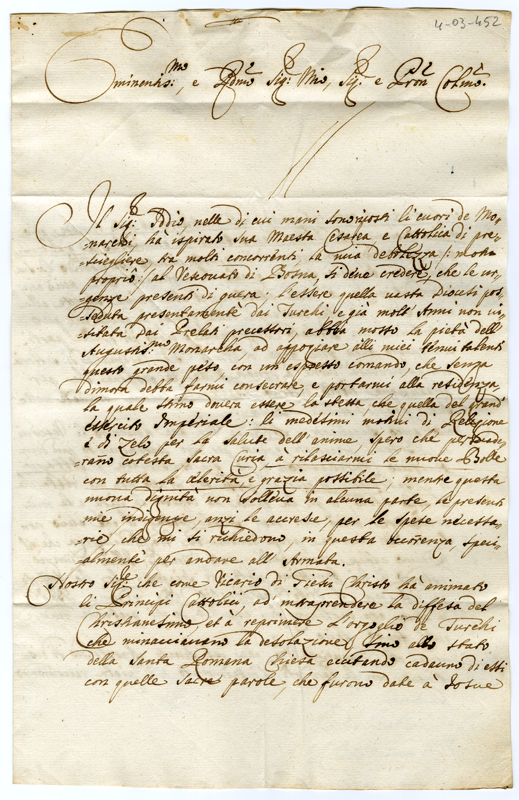 4-03-452
Eminentis:mo, e Rdmo Sigr Mio, Sigr e Pron Colmo.
Il Sigr Iddio, nelle di cui mani sono riposti li cuori de Mo-
narchi, hà ispirato sua Maesta Cesarea e Cattolica di pre-
-sciegliere tra molti concorrenti la mia debolezza /: motu
proprio :/ al Vescovato di Bosna, si deve credere, che le ur-
genze presenti di guera: l'essere quella vasta Diocesi pos-
seduta presentamente dai Turchi, e già molt' Anni non vi-
sitata dai Prelati precessori, abbia mosso la pietà dell'
Augustis:mo Monarcha, ad appoggiare alli miei tenui talenti
questo grande peso, con un espresso comando, che senza
dimora debba farmi consecrare e portarmi alla residenza,
la quale stimo dovera essere la stessa, che quella del grand'
esercito Imperiale: li medesimi motivi di Religione
è di zelo per la salute dell'anime spero che persuade-
ranno cotesta Sacra Curia à rilasciarmi le nuove Bolle
con tutta la celerità, e grazia possibile; mentre questa
nuova dignità non solleva in alcuna parte, le presenti
mie indigenze, anzi le accresce, per le spese necessa-
rie che mi si richiedono, in questa occorrenza, speci-
almente per andare all' Armata.
Nostro Sigre che come Vicario di Giesù Christo hà animato
li Principi Cattolici, ad' intraprendere la diffesa del
Christianesimo et à reprimere l'orgoglio de Turchi
che minacciavano la desolazione sino allo stato
della Santa Romana Chiesa eccitando cadauno di essi
con quelle Sacre parole, che furono date à Josue